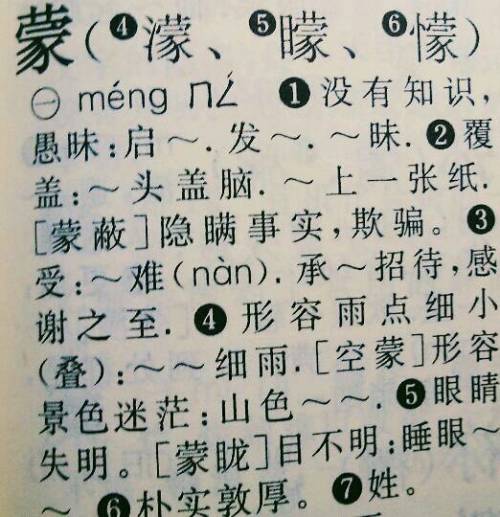 蒙(❹濛、❺矇、❻懞)
㊀ méng ㄇㄥˊ ❶没有知识,
愚昧:启～.发～.～昧.❷覆
盖:～头盖脑.～上一张纸.
[蒙蔽]隐瞒事实,欺骗。❸
受:～难(nàn).承～招待,感
谢之至.❹形容雨点细小
(叠):～～细雨.[空蒙]形容
景色迷茫:山色～～.❺眼睛
失明。[蒙眬]目不明:睡眼～
～ ❻朴实敦厚。❼姓。